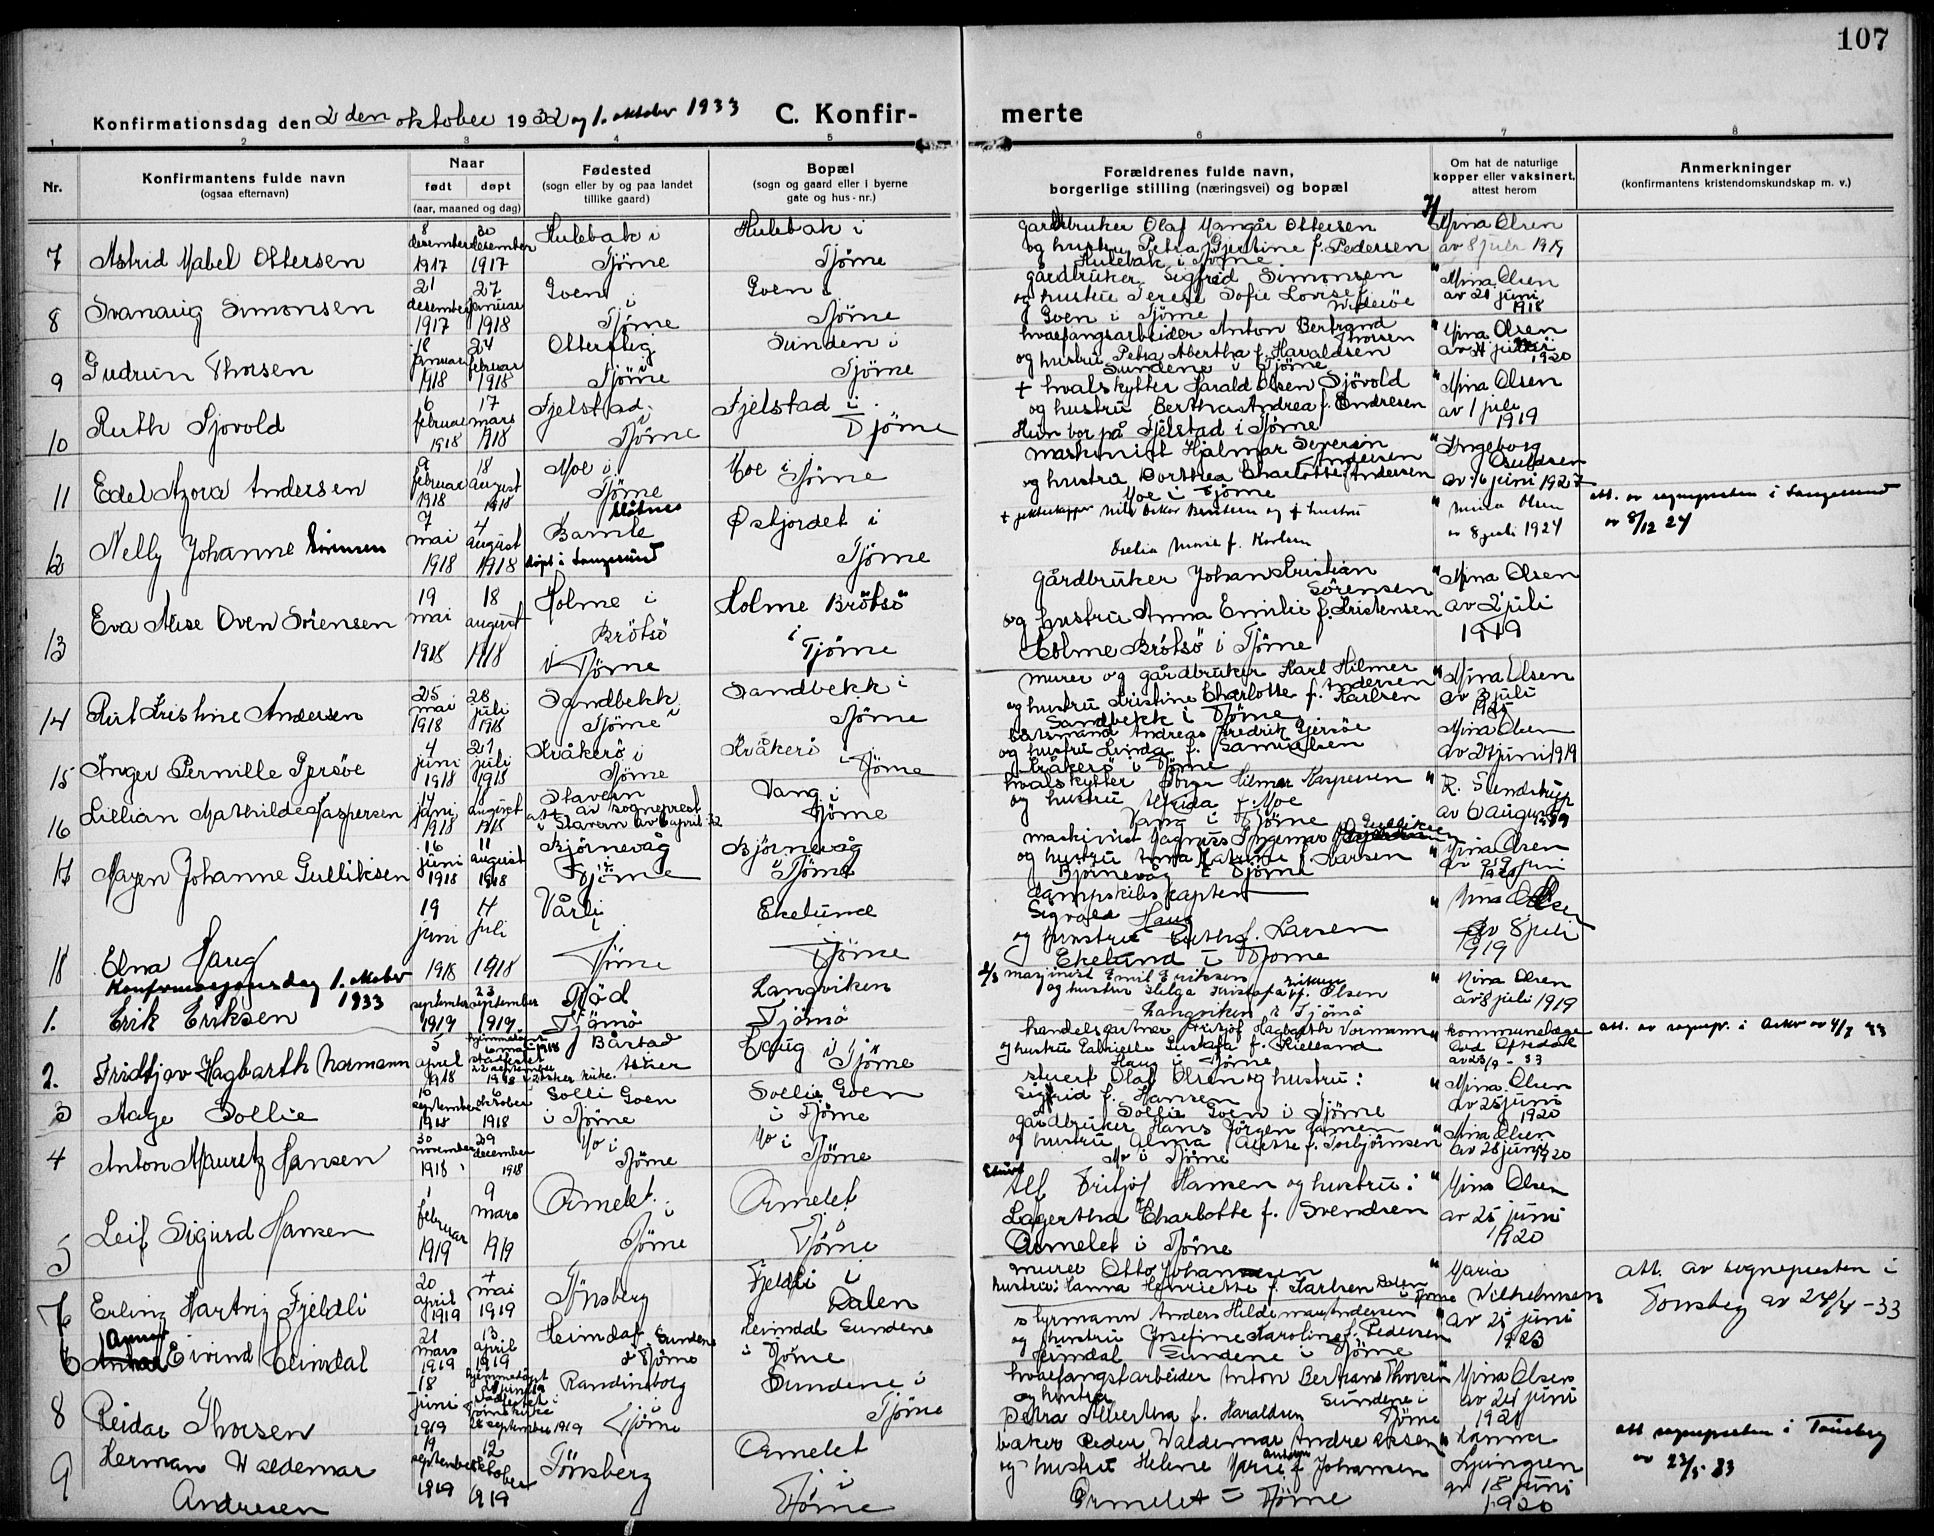 107
Konfirmationsdag den 2 den oktober 1932 og 1. oktober 1933
C. Konfir-
merte
1 2 3 4 5 6 7 8
Nr.
Konfirmantens fulde navn
(ogsaa efternavn)
Naar
født døpt
(aar, maaned og dag)
Fødested
(sogn eller by og paa landet
tillike gaard)
Bopæl
(sogn og gaard eller i byerne
gate og hus-nr.)
Forældrenes fulde navn,
borgerlige stilling (næringsvei) og bopæl
Om hat de naturlige
kopper eller vaksinert,
attest herom
Anmerkninger
(konfirmantens kristendomskundskap m. v.)
7 Astrid Mabel Ottersen
8 desember 1917
30 desember 1917
Hulebak i Tjøme
Hulebak i Tjøme
gårdbruker Olaf Ottersen
og hustru Petra Gjertine f. Pedersen
Hulebak i Tjøme
Mina Olsen
av 8 juli 1919
8 Svanaug Simonsen
21 desember 1917
27 januar 1918
Goen i Tjøme
Goen i Tjøme
gårdbruker Sigfred Simonsen
og hustru Terese Sofie Lovise f.
Goen i Tjøme
Mina Olsen
av 21 juni 1918
9 Gudrun Thorsen
18 januar 1918
24 februar 1918
Otterstig i Tjøme
Sundene i Tjøme
hvalfangsarbeider Anton Bertrand Thorsen
og hustru Petra Albertha f. Haraldsen
Sundene i Tjøme
Mina Olsen
1920
10 Ruth Sjøvold
6 februar 1918
17 mars 1918
Fjelstad i Tjøme
Fjelstad i Tjøme
+ hvalskytter Harald Olsen Sjövold
og hustru Bertha Andrea f. Andresen
Hun bor på Fjelstad i Tjøme
Mina Olsen
av 1 juli 1919
11 Edel Azora Andersen
9 februar 1918
18 august 1918
Moe i Tjøme
Moe i Tjøme
maskinist Hjalmar Severin Andersen
og hustru Dorthea Charlotte f. Andersen
Moe i Tjøme
Ingeborg
av 16 juni 1927
12 Nelly Johanne
7 mai 1918
4 august 1918
Bamle
døpt i Langesund
Østjordet i Tjøme
og + hustru
Marie f. Karlsen
Mina Olsen
av 8 juli 1924
att. av sognepresten i Langesund
av 8/12 24
13 Eva Alise Oven Sörensen
19 mai 1918
18 august 1918
Holme i Brötsö i Tjøme
Holme Brötsö i Tjøme
gårdbruker Johan Kristian Sörensen
og hustru Anna Emilie f. Kristensen
Holme Brötsö i Tjøme
Mina Olsen
av 2 juli 1919
14 Rut Kristine Andersen
25 mai 1918
28 juli 1918
Sandbekk i Tjøme
Sandbekk i Tjøme
murer og gårdbruker Karl Hilmer Andersen
og hustru Kristine Charlotte f. Karlsen
Sandbekk i Tjøme
Mina Olsen
av 3 juli 1925
15 Inger Pernille Gjersøe
4 juni 1918
21 juli 1918
Kråkerö i Tjøme
Kråkerö i Tjøme
båtsmand Andreas Fredrik Gjersöe
og hustru Lovinda f. Samuelsen
Kråkerö i Tjøme
Mina Olsen
av 24 juni 1919
16 Lillian Mathilde Kaspersen
juni 1918
11 august 1918
Stavern
att av sogneprest
i Stavern av 6 april 32
Vang i Tjøme
hvalskytter Hilmar Kaspersen
og hustru f. Moe
Vang i Tjøme
R. Sundstrup
av 6 august
17 Magn Johanne Gulliksen
16 juni 1918
11 august 1918
Bjørnevåg i Tjøme
Bjørnevåg i Tjøme
maskinist Magnus Ingemar Gulliksen
og hustru Anna Katrine f. Larsen
Bjørnevåg i Tjøme
Mina Olsen
18 Elna Haug
19 juni 1918
14 juli 1918
Vårli i Tjøme
Ekelund i Tjøme
dampskibskaptein
Sigvald Haug
og hustru f. Larsen
Ekelund i Tjøme
Mina Olsen
av 8 juli 1919
Konfirmasjonsdag 1. oktober 1933
1. Erik Eriksen
september 1919
23 september 1919
Röd i Tjömö
Langviken i Tjömö
maskinist Emil Eriksen
og hustru Helga f. Olsen
Langviken i Tjömö
Mina Olsen
av 8 juli 1919
2. Fridtjov Hagbarth Normann
5 april 1918
hjemmedøpt
6 mai 1918
stadfestet
22 september 1918 i Asker kirke
Bårstad i Asker
Haug i Tjøme
handelsgartner Fritjof Hagbarth Normann
og hustru Gabrielle Gustava f. Kielland
Haug i Tjøme
kommunelæge
av 23/9 - 33
att. av sognepr. i Asker av 4/7 33
3 Aage Sollie
10 september 1918
6 oktober 1918
Solli Goen i Tjøme
Sollie Goen i Tjøme
stuert Olaf Olsen og hustru:
Sigfrid f. Hansen
Sollie Goen i Tjøme
Mina Olsen
av 25 juni 1920
4 Anton Mauretz Hansen
30 november 1918
29 december 1918
Mo i Tjøme
Mo i Tjøme
gårdbruker Hans Jörgen Hansen
og hustru Alma Alette f. Torbjörnsen
Mo i Tjøme
Mina Olsen
av 28 juni 1920
5 Leif Sigurd Hansen
1 februar 1919
9 mars 1919
Ormelet i Tjøme
Ormelet i Tjøme
stuert Alf Fritjof Hansen og hustru:
Lagertha Charlotte f. Svendsen
Ormelet i Tjøme
Mina Olsen
av 25 juni 1920
6 Erling Hartvig Fjeldli
20 april 1919
4 mai 1919
Tönsberg
Fjeldli i Dalen
murer Otto Johannessen
hustru: Hanna Henriette f. Karlsen Dalen i Tjøme
Maria Vilhelmsen
av 25 juni 1923
att. av sognepresten i
Tonsberg av 24/4 - 33
Eivind Heimdal
21 mars 1919
13 april 1919
Heimdal Sundene i Tjøme
Heimdal Sundene i Tjöme
styrmann Anders Hildemar Andersen
og hustru Josefine Karoline f. Pedersen
Heimdal Sundene i Tjøme
8 Reidar Thorsen
18 juni 1919
hjemmedøpt
28 september 1919
Randineborg i Tjøme
Sundene i Tjøme
hvalfangstarbeider Anton Bertrand Thorsen
og hustru Sundene i
Petra Albertha f. Haraldsen Tjøme
Mina Olsen
av 24 juni 1921
9 Herman Waldemar Andresen
19 september 1919
12 oktober 1919
Tönsberg
Ormelet i Tjøme
baker Peder Waldemar Andreassen
og hustru Helene Marie f. Johansen
Ormelet i Tjøme
Hanna Ljungren
av 18 juni 1920
att sognepresten i Tönsberg
av 23/5 33